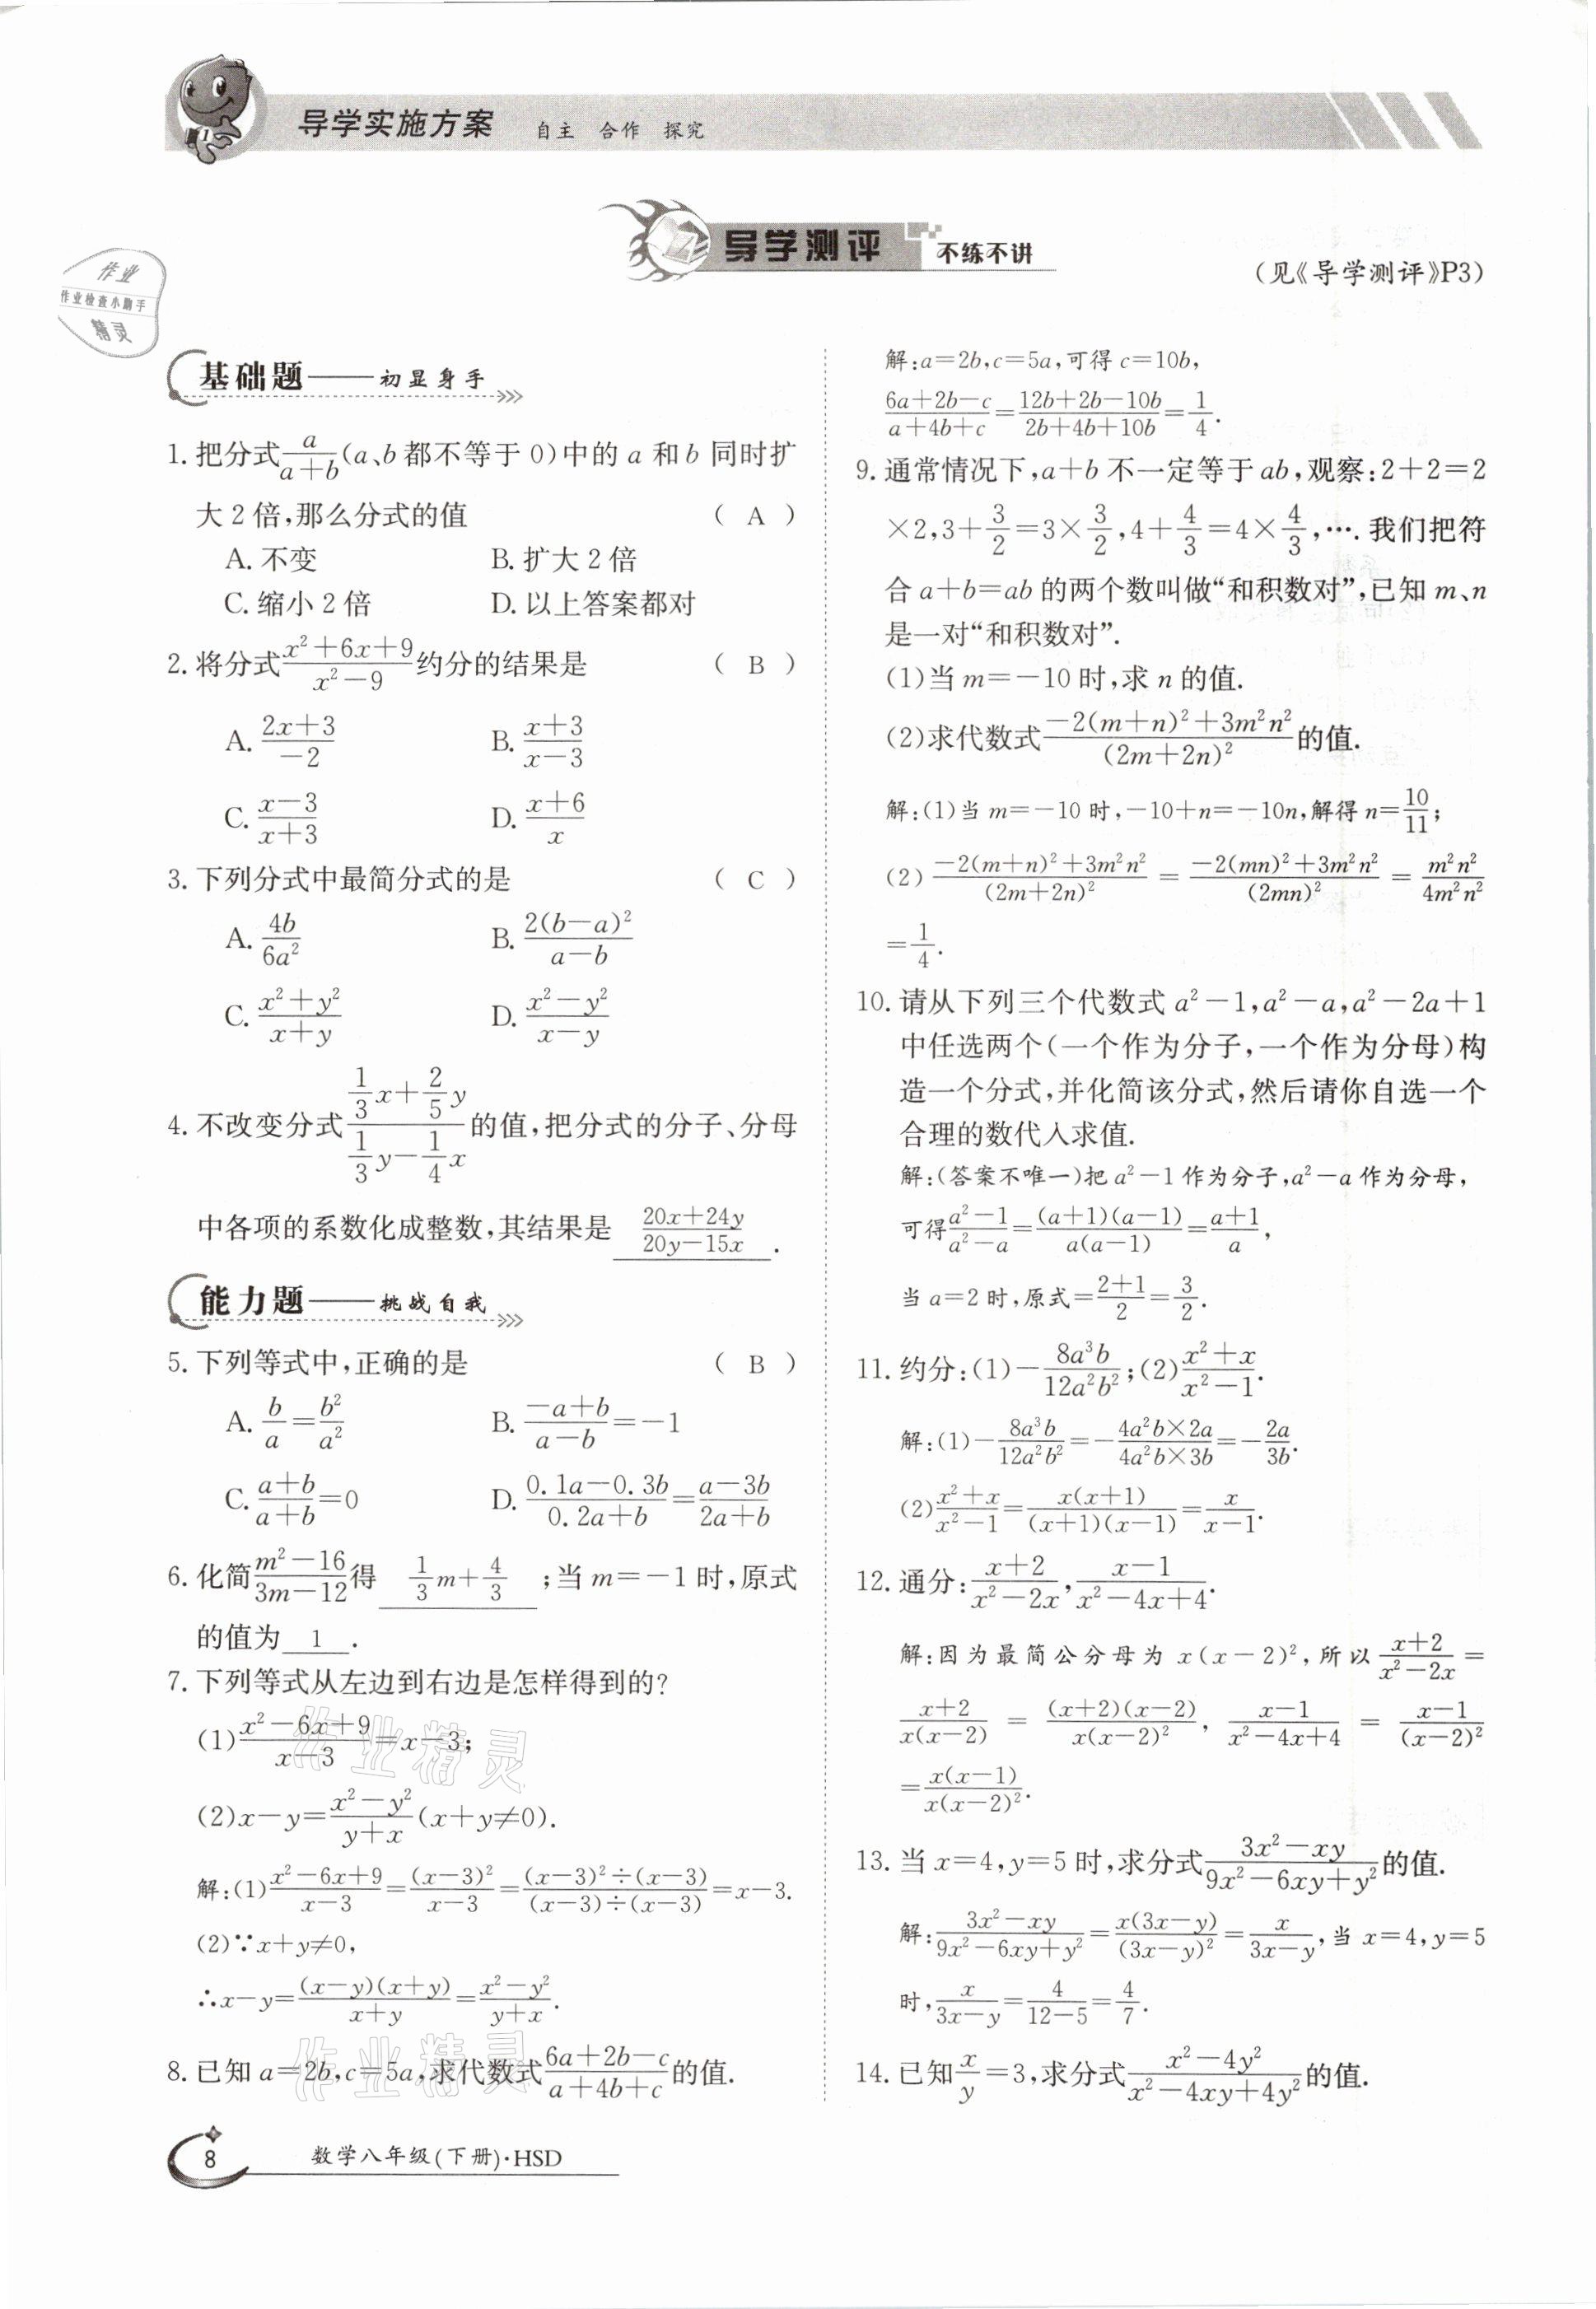 导学实施方案 自主 合作 探究
导学测评 不练不讲
(见《导学测评》P3)
作业
作业检查小助手
精灵
基础题——初显身手
1. 把分式a/(a+b)(a、b都不等于0)中的a和b同时扩
大2倍,那么分式的值 ( A )
A. 不变 B. 扩大2倍
C. 缩小2倍 D. 以上答案都对
2. 将分式(x²+6x+9)/(x²-9)约分的结果是 ( B )
A. (2x+3)/(-2) B. (x+3)/(x-3)
C. (x-3)/(x+3) D. (x+6)/x
3. 下列分式中最简分式的是 ( C )
A. 4b/6a² B. 2(b-a)²/(a-b)
C. (x²+y²)/(x+y) D. (x²-y²)/(x-y)
4. 不改变分式(1/3x+2/5y)/(1/3y-1/4x)的值,把分式的分子、分母
中各项的系数化成整数,其结果是 (20x+24y)/(20y-15x) .
能力题——挑战自我
5. 下列等式中,正确的是 ( B )
A. b/a=b²/a² B. (-a+b)/(a-b)=-1
C. (a+b)/(a+b)=0 D. (0.1a-0.3b)/(0.2a+b)=(a-3b)/(2a+b)
6. 化简(m²-16)/(3m-12)得 1/3m+4/3 ;当m=-1时,原式
的值为 1 .
7. 下列等式从左边到右边是怎样得到的?
(1)(x²-6x+9)/(x-3)=x-3;
(2)x-y=(x²-y²)/(y+x)(x+y≠0).
解:(1)(x²-6x+9)/(x-3)=(x-3)²/(x-3)=((x-3)²÷(x-3))/((x-3)÷(x-3))=x-3.
(2)∵x+y≠0,
∴x-y=(x-y)(x+y)/(x+y)=(x²-y²)/(y+x).
8. 已知a=2b,c=5a,求代数式(6a+2b-c)/(a+4b+c)的值.
作业精灵
作业精灵
8 数学八年级(下册)·HSD
解:a=2b,c=5a,可得c=10b,
(6a+2b-c)/(a+4b+c)=(12b+2b-10b)/(2b+4b+10b)=1/4.
9. 通常情况下,a+b不一定等于ab,观察:2+2=2
×2,3+3/2=3×3/2,4+4/3=4×4/3,…. 我们把符
合a+b=ab的两个数叫做“和积数对”,已知m、n
是一对“和积数对”.
(1)当m=-10时,求n的值.
(2)求代数式(-2(m+n)²+3m²n²)/(2m+2n)²的值.
解:(1)当m=-10时,-10+n=-10n,解得n=10/11;
(2)(-2(m+n)²+3m²n²)/(2m+2n)²=(-2(mn)²+3m²n²)/(2mn)²=m²n²/4m²n²
=1/4.
10. 请从下列三个代数式a²-1,a²-a,a²-2a+1
中任选两个(一个作为分子,一个作为分母)构
造一个分式,并化简该分式,然后请你自选一个
合理的数代入求值.
解:(答案不唯一)把a²-1作为分子,a²-a作为分母,
可得(a²-1)/(a²-a)=(a+1)(a-1)/a(a-1)=(a+1)/a,
当a=2时,原式=(2+1)/2=3/2.
11. 约分:(1)-8a³b/12a²b²;(2)(x²+x)/(x²-1).
解:(1)-8a³b/12a²b²=-(4a²b×2a)/(4a²b×3b)=-2a/3b.
(2)(x²+x)/(x²-1)=x(x+1)/(x+1)(x-1)=x/(x-1).
12. 通分:(x+2)/(x²-2x),(x-1)/(x²-4x+4).
解:因为最简公分母为x(x-2)²,所以(x+2)/(x²-2x)=
(x+2)/x(x-2)=(x+2)(x-2)/x(x-2)²,(x-1)/(x²-4x+4)=(x-1)/(x-2)²
=x(x-1)/x(x-2)².
13. 当x=4,y=5时,求分式(3x²-xy)/(9x²-6xy+y²)的值.
解:(3x²-xy)/(9x²-6xy+y²)=x(3x-y)/(3x-y)²=x/(3x-y),当x=4,y=5
时,x/(3x-y)=4/(12-5)=4/7.
14. 已知x/y=3,求分式(x²-4y²)/(x²-4xy+4y²)的值.